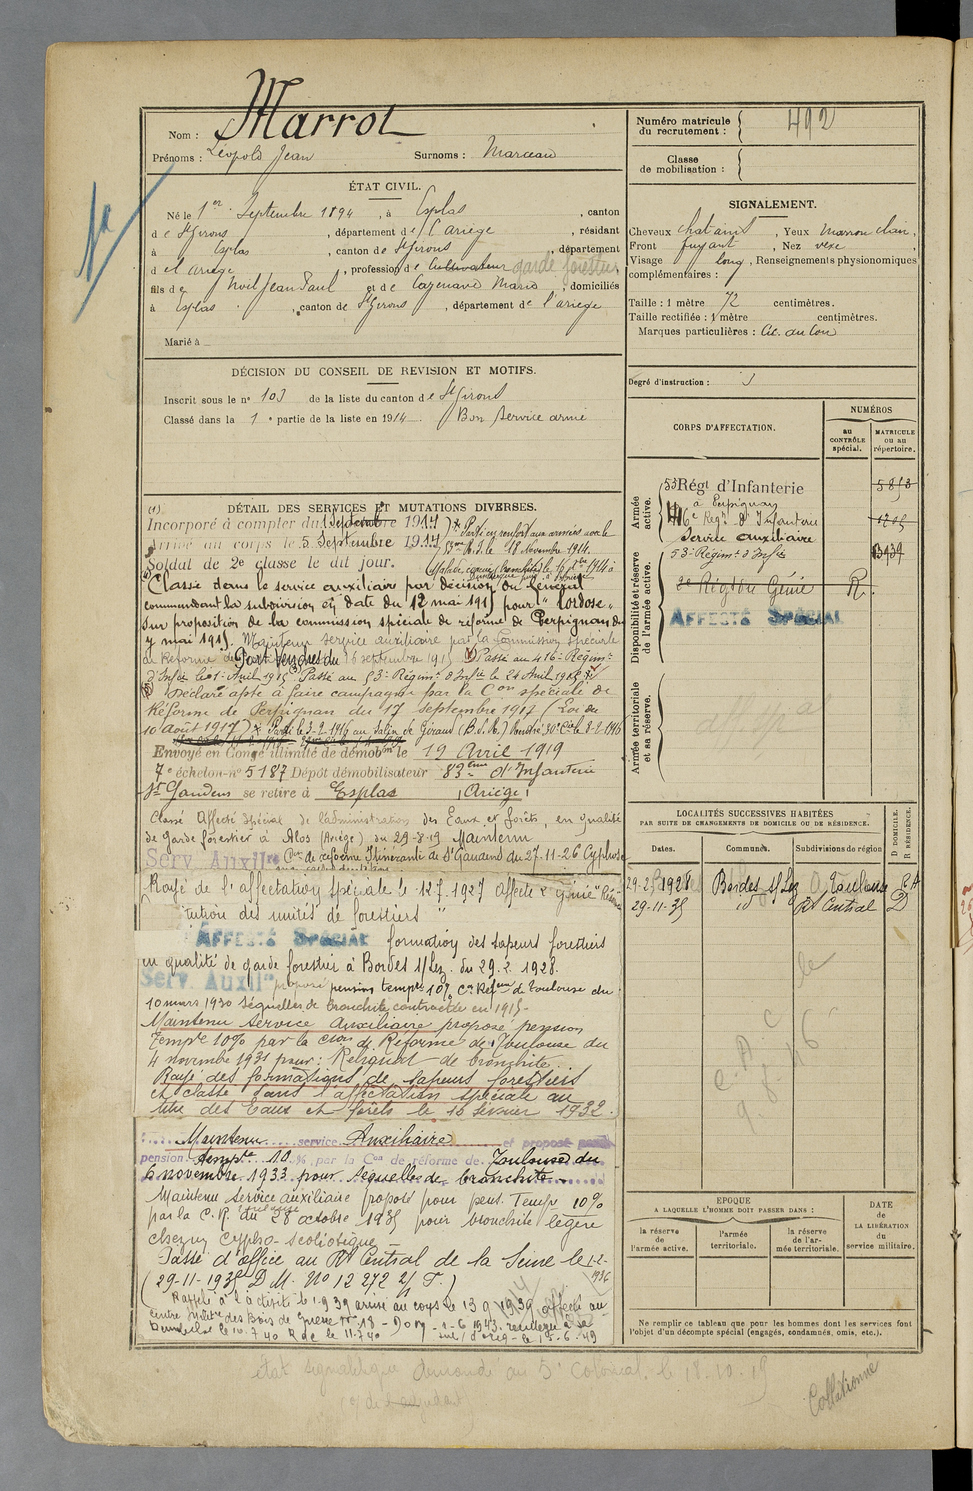 Nom : Marrot
Prénoms : Léopold Jean Surnoms : Marceau
ÉTAT CIVIL.
Né le 1er Septembre 1894, à Esplas, canton
de St Girons, département de l'Ariège, résidant
à Esplas, canton de St Girons, département
de l'Ariège, profession de Cultivateur garde forestier
fils de Jean Paul et de Cazenave Marie, domiciliés
à Esplas, canton de St Girons, département de l'ariège
Marié à
DÉCISION DU CONSEIL DE REVISION ET MOTIFS.
Inscrit sous le n° 103 de la liste du canton de St Girons
Classé dans la 1e partie de la liste en 1914 Bon service armé
DÉTAIL DES SERVICES ET MUTATIONS DIVERSES.
Incorporé à compter du 1 Septembre 1914 Parti en renfort aux armées avec le
Arrivé au corps le 5 Septembre 1914 53me R.I. le 18 Novembre 1914.
Soldat de 2e classe le dit jour.
Classé dans le service auxiliaire par décision du Général
commandant la subdivision en date du 12 mai 1915 pour "Lordose"
sur proposition de la commission spéciale de réforme de Perpignan du
7 mai 1915. Maintenu service auxiliaire par la Commission spéciale
de Réforme de Port Vendres du 16 septembre 1915 Passé au 416e Régimt
d'Infie le 1er Avril 1915 Passé au 53e Régimt d'Infie le 21 Avril
Déclaré apte à faire campagne par la Con spéciale de
Réforme de Perpignan du 17 septembre 1917 (Loi du
10 août 1917)
Envoyé en Congé illimité de démobon le 19 Avril 1919
7e échelon n° 5187 Dépôt démobilisateur 83ème d'Infanterie
St Gaudens se retire à Esplas (Ariège)
Classé Affecté spécial de l'administration des Eaux et forêts, en qualité
de garde forestier à Alos (Ariège) du 29-8-19 Maintenu
Serv. Auxilre Con de réforme Itinérante de St Gaudens du 27-11-26
Rayé de l'affectation spéciale le 12.7.1927 affecté "Génie"
tution des unités de forestiers"
AFFECTÉ SPÉCIAL formation des sapeurs forestiers
en qualité de garde forestier à Bordes s/Lez. du 29.2.1928.
Serv. Auxilre proposé pension tempre 10% Con Réfme de Toulouse du
10 mars 1930 séquelles de bronchite contractée en 1915-
Maintenu service auxiliaire proposé pension
tempre 10% par la Con de Réforme de Toulouse du
4 novembre 1931 pour : Reliquat de bronchite
Rayé des formations de sapeurs forestiers
et classé dans l'affectation spéciale au
titre des Eaux et forêts le 15 février 1932.
Maintenu service Auxiliaire et proposé
pension tempre 10 % par la Con de réforme de Toulouse du
6 novembre 1933 pour séquelles de bronchite
Maintenu service auxiliaire proposé pour pens. Tempe 10%
par la C.R. du 28 octobre 1935 pour bronchite légère
chez un Cypho-Scoliotique
Passé d'office au Rt Central de la Seine le 1-2-1936
(29-11-1935 D.M. No 12272 2/T.)
Rappelé à l'activité le 1.9.39 arrivé au corps le 13 9 1939 affecté au
Centre Milre des Bois de Guerre N° 18
Numéro matricule du recrutement : 492
Classe de mobilisation :
SIGNALEMENT.
Cheveux chatains, Yeux marron clair,
Front fuyant, Nez vexe,
Visage long, Renseignements physionomiques
complémentaires :
Taille : 1 mètre 72 centimètres.
Taille rectifiée : 1 mètre centimètres.
Marques particulières : Cic. au cou
Degré d'instruction : 3
CORPS D'AFFECTATION.
NUMÉROS
au CONTRÔLE spécial.
MATRICULE ou au répertoire.
Armée active.
53 Régt d'Infanterie 5853
à Perpignan
416e Regt d'Infanterie
Service auxiliaire
Disponibilité et réserve de l'armée active.
53e Régimt d'Infie
2e Régt du Génie R.
AFFECTÉ SPÉCIAL
Armée territoriale et sa réserve.
LOCALITÉS SUCCESSIVES HABITÉES
PAR SUITE DE CHANGEMENTS DE DOMICILE OU DE RÉSIDENCE.
D DOMICILE. R RÉSIDENCE.
Dates. Communes. Subdivisions de région
29-2-1928 Bordes s/Lez Toulouse R
29-11-35 id Rt Central D
EPOQUE
A LAQUELLE L'HOMME DOIT PASSER DANS :
la réserve de l'armée active.
l'armée territoriale.
la réserve de l'armée territoriale.
DATE de LA LIBÉRATION du service militaire.
Ne remplir ce tableau que pour les hommes dont les services font
l'objet d'un décompte spécial (engagés, condamnés, omis, etc.).
Etat signalétique demandé au 5e Colonial le 18.10.19
Collationné